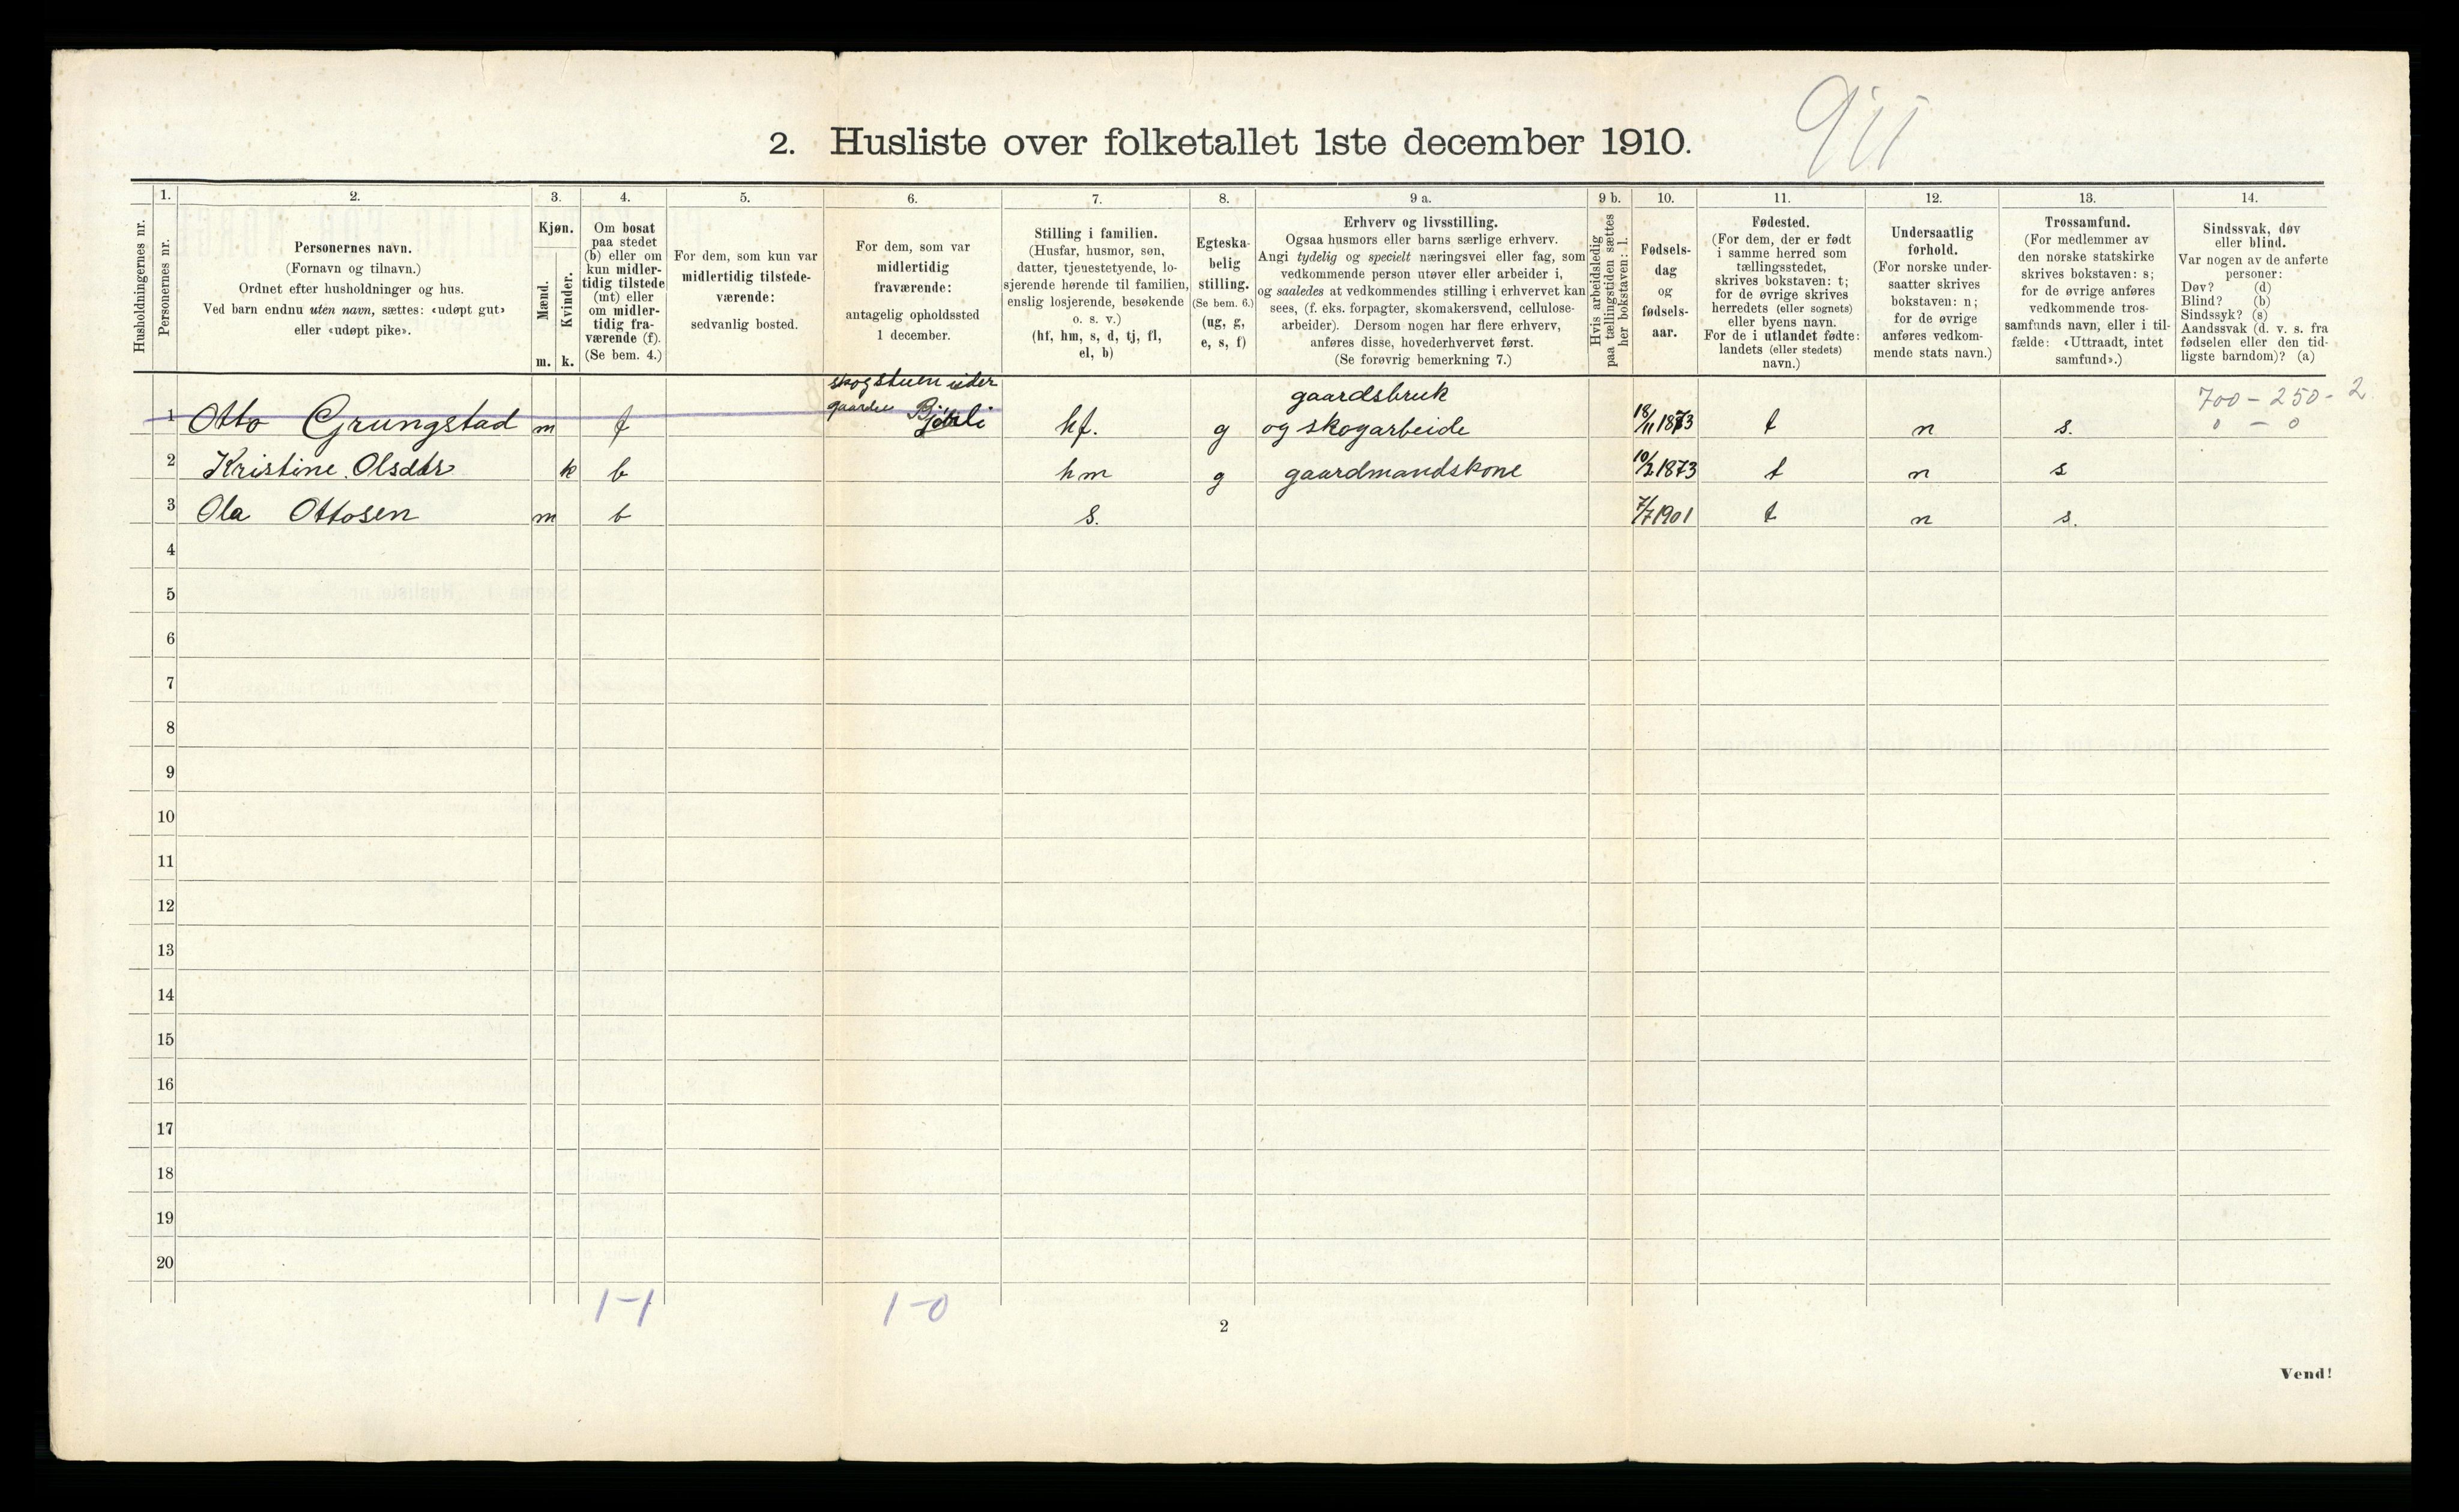 2. Husliste over folketallet 1ste december 1910.
1. 2. 3. 4. 5. 6. 7. 8. 9 a. 9 b. 10. 11. 12. 13. 14.
Husholdningernes nr.
Personernes nr.
Personernes navn.
(Fornavn og tilnavn.)
Ordnet efter husholdninger og hus.
Ved barn endnu uten navn, sættes: «udøpt gut»
eller «udøpt pike».
Kjøn.
Mænd.
Kvinder.
m. k.
Om bosat
paa stedet
(b) eller om
kun midler-
tidig tilstede
(mt) eller
om midler-
tidig fra-
værende (f).
(Se bem. 4.)
For dem, som kun var
midlertidig tilstede-
værende:
sedvanlig bosted.
For dem, som var
midlertidig
fraværende:
antagelig opholdssted
1 december.
Stilling i familien.
(Husfar, husmor, søn,
datter, tjenestetyende, lo-
sjerende hørende til familien,
enslig losjerende, besøkende
o. s. v.)
(hf, hm, s, d, tj, fl,
el, b)
Egteska-
belig
stilling.
(Se bem. 6.)
(ug, g,
e, s, f)
Erhverv og livsstilling.
Ogsaa husmors eller barns særlige erhverv.
Angi tydelig og specielt næringsvei eller fag, som
vedkommende person utøver eller arbeider i,
og saaledes at vedkommendes stilling i erhvervet kan
sees, (f. eks. forpagter, skomakersvend, cellulose-
arbeider). Dersom nogen har flere erhverv,
anføres disse, hovederhvervet først.
(Se forøvrig bemerkning 7.)
Hvis arbeidsledig
paa tællingstiden sættes
her bokstaven: l.
Fødsels-
dag
og
fødsels-
aar.
Fødested.
(For dem, der er født
i samme herred som
tællingsstedet,
skrives bokstaven: t;
for de øvrige skrives
herredets (eller sognets)
eller byens navn.
For de i utlandet fødte:
landets (eller stedets)
navn.)
Undersaatlig
forhold.
(For norske under-
saatter skrives
bokstaven: n;
for de øvrige
anføres vedkom-
mende stats navn.)
Trossamfund.
(For medlemmer av
den norske statskirke
skrives bokstaven: s;
for de øvrige anføres
vedkommende tros-
samfunds navn, eller i til-
fælde: «Uttraadt, intet
samfund».)
Sindssvak, døv
eller blind.
Var nogen av de anførte
personer:
Døv? (d)
Blind? (b)
Sindssyk? (s)
Aandssvak (d. v. s. fra
fødselen eller den tid-
ligste barndom)? (a)
skogstuen under gaardsbruk 700 - 250 - 2
1 Otto Grungstad m f gaarden hf. g og skogarbeide 18/11 1873 t n s. 0 - 0
2 Kristine Olsdtr k b hm g gaardmandskone 10/2 1873 t n s
3 Ola Ottosen m b s. 7/7 1901 t n s.
4
5
6
7
8
9
10
11
12
13
14
15
16
17
18
19
20
1-1 1-0
2
Vend!